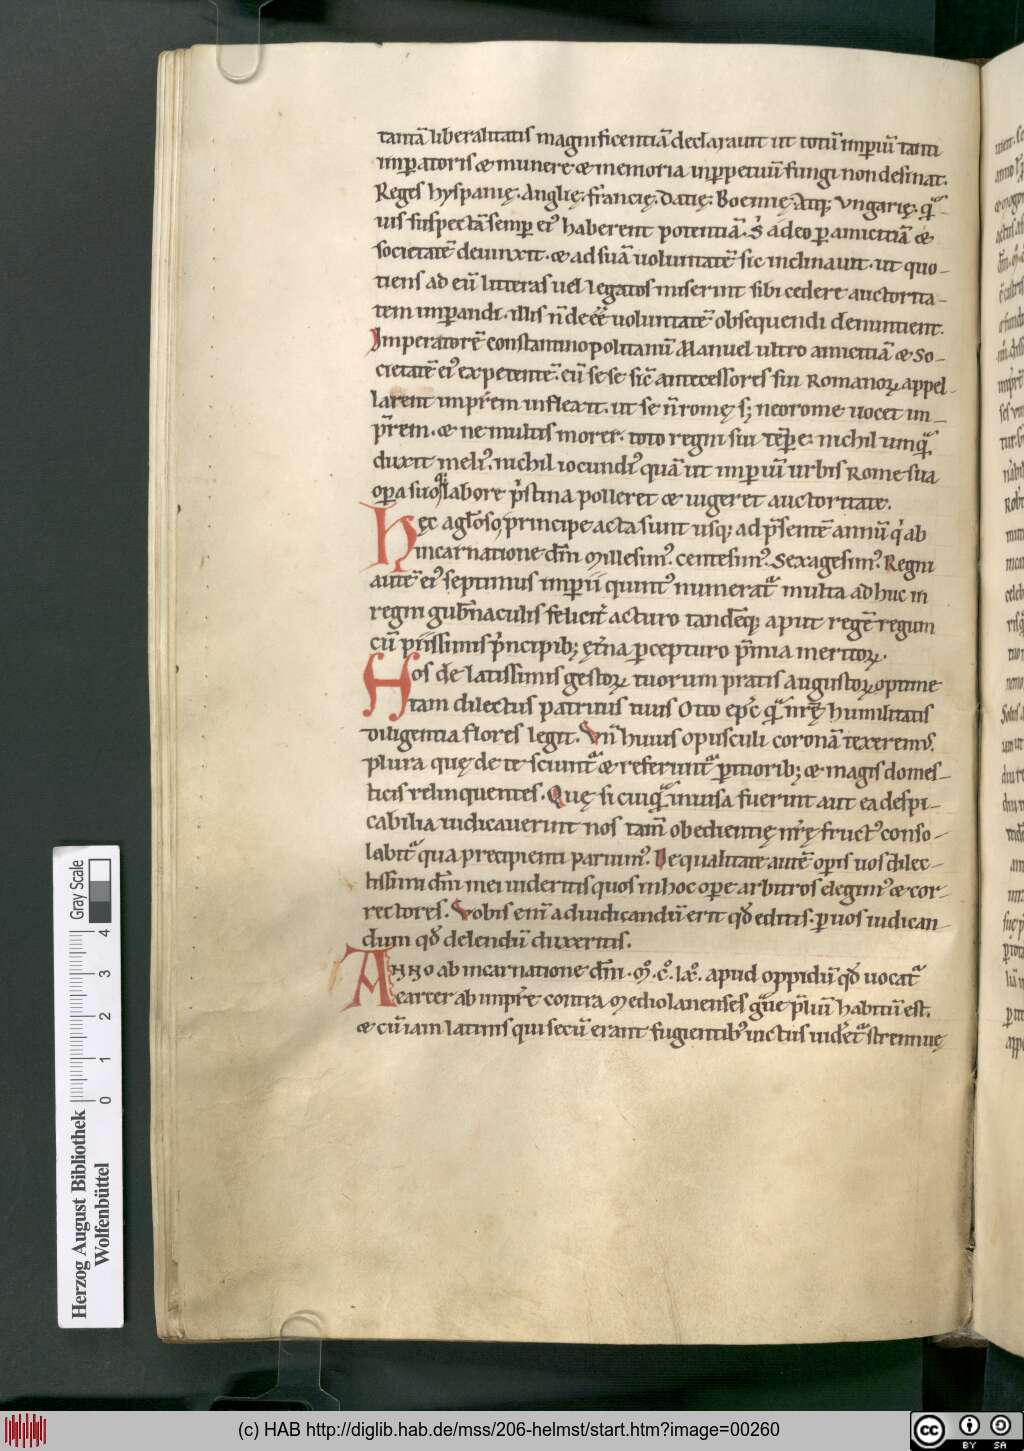 tantā liberalitatis magnificentiā declarauit ut totū imperiū tanti
imperatoris & munere & memoria inperpetuū fungi non desinat.
Reges hyspanię. Anglię. francię. Datię. Boemię. Atq; vngarię. quā
uis suspectā semper ei' haberent potentiā. S; adeo per amicitiā &
societatē deuinxit. & ad suā uoluntatē sic inclinauit. ut quo-
tiens ad eū litteras uel legatos miserint sibi cedere auctorita-
tem imperandi. illis n̄ deēē uoluntatē obsequendi denuntient.
Imperatorē constantinopolitanū Manuel ultro amicitiā & so-
cietatē ei' expetentē. cū sese sic̄ antecessores sui Romanoꝝ appel-
larent imprēm inflexit. ut se n̄ romę s; neorome uocet im-
prēm. & ne multis morer. toto regni sui tēpore nichil umquā
duxit meli'. nichil iocundi' quā ut imperiū urbis Rome sua
opera suoq; labore pristina polleret & uigeret auctoritate.
Hęc a gl̄oso principe acta sunt usq; ad p̄sentē annū qui ab
incarnatione dn̄i Millesim'. centesim'. Sexagesim'. Regni
autē ei' septimus imperii quint' numeratur multa ad huc in
regni gub̄naculis felicit̄ acturo tandēq; aput regē regum
cū piissimis principib; ęt̄na percepturo p̄mia meritoꝝ.
Hos de latissimis gestoꝝ tuorum pratis augustoꝝ optime
tam dilectus patruus tuus Otto epc̄ quā nr̄ę humilitatis
diligentia flores legit. Vn̄ huius opusculi coronā texerem'.
plura quę de te sciuntur & referuntur peritiorib; & magis domes-
ticis relinquentes. Quę si cuiquā inuisa fuerint aut ea despi-
cabilia iudicauerint nos tam̄ obedientię nr̄ę fruct' conso-
labitur qua precipienti paruim'. De qualitate autē operis uos dilec-
tissimi dn̄i mei uideritis quos in hoc opere arbitros elegim' & cor-
rectores. Vobis eni ad uidicandū erit qd̄ editis. per uos iudican
dum qd̄ delendū duxeritis.
ANNO ab incarnatione dn̄i .M°.C°.lx°. apud oppidū qd̄ uocatur
carcer ab impr̄e contra Mediolanenses graue p̄liū habitū est.
& cū iam latinis qui secū erant fugientib' uictus uidet̄ strennuę
Herzog August Bibliothek
Wolfenbüttel
Gray Scale
0 1 2 3 4
(c) HAB http://diglib.hab.de/mss/206-helmst/start.htm?image=00260
cc BY SA